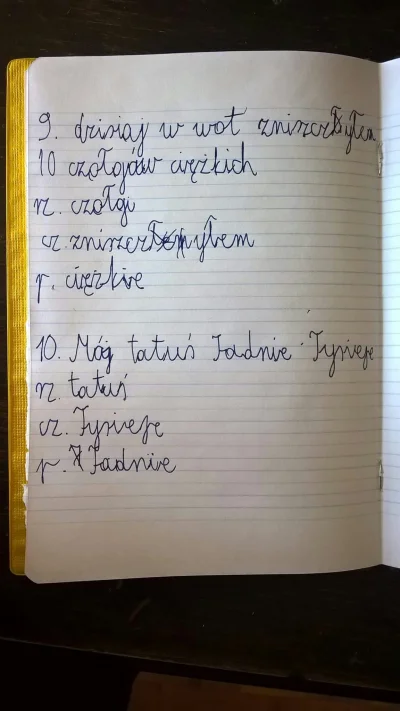 9. dzisiaj w wot zniszczyłem
10 czołgów ciężkich
rz. czołgi
cz. zniszczyłem
p. ciężkie
10. Mój tatuś ładnie łysieje
rz. tatuś
cz. łysieje
p. ładnie